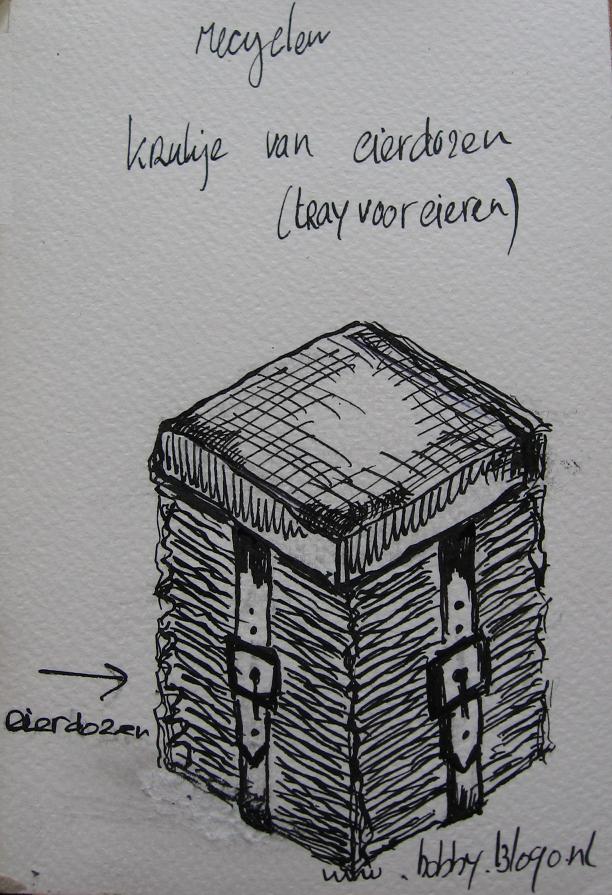 recyclen
krukje van eierdozen
(tray voor eieren)
eierdozen
www.hobby.blogo.nl